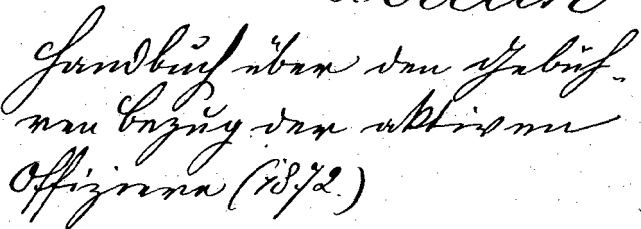 Handbuch über den Gebüh-
ren bezug der aktiven
Offiziere (1872.)